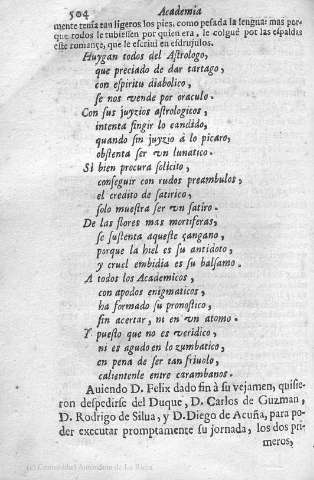 504 Academia
mente tenia tan ligeros los pies, como pesada la lengua: mas por-
que todos le tubiessen por quien era, le colguè por las espaldas
este romance, que le escriui en esdrujulos.
Huygan todos del Astrologo,
que preciado de dar tartago,
con espiritu diabolico,
se nos vende por oraculo.
Con sus juyzios astrologicos,
intenta fingir lo candido,
quando sin juyzio à lo picaro,
obstenta ser vn lunatico.
Si bien procura solicito,
conseguir con rudos preambulos,
el credito de satirico,
solo muestra ser vn satiro.
De las flores mas mortiferas,
se sustenta aqueste çangano,
porque la hiel es su antidoto,
y cruel embidia es su balsamo.
A todos los Academicos,
con apodos enigmaticos,
ha formado su pronostico,
sin acertar, ni en vn atomo.
Y puesto que no es veridico,
ni es agudo en lo zumbatico,
en pena de ser tan friuolo,
calientenle entre carambanos.
Auiendo D. Felix dado fin à su vejamen, quisie-
ron despedirse del Duque, D. Carlos de Guzman,
D. Rodrigo de Silua, y D. Diego de Acuña, para po-
der executar promptamente su jornada, los dos pri-
meros,
(c) Comunidad Autónoma de La Rioja